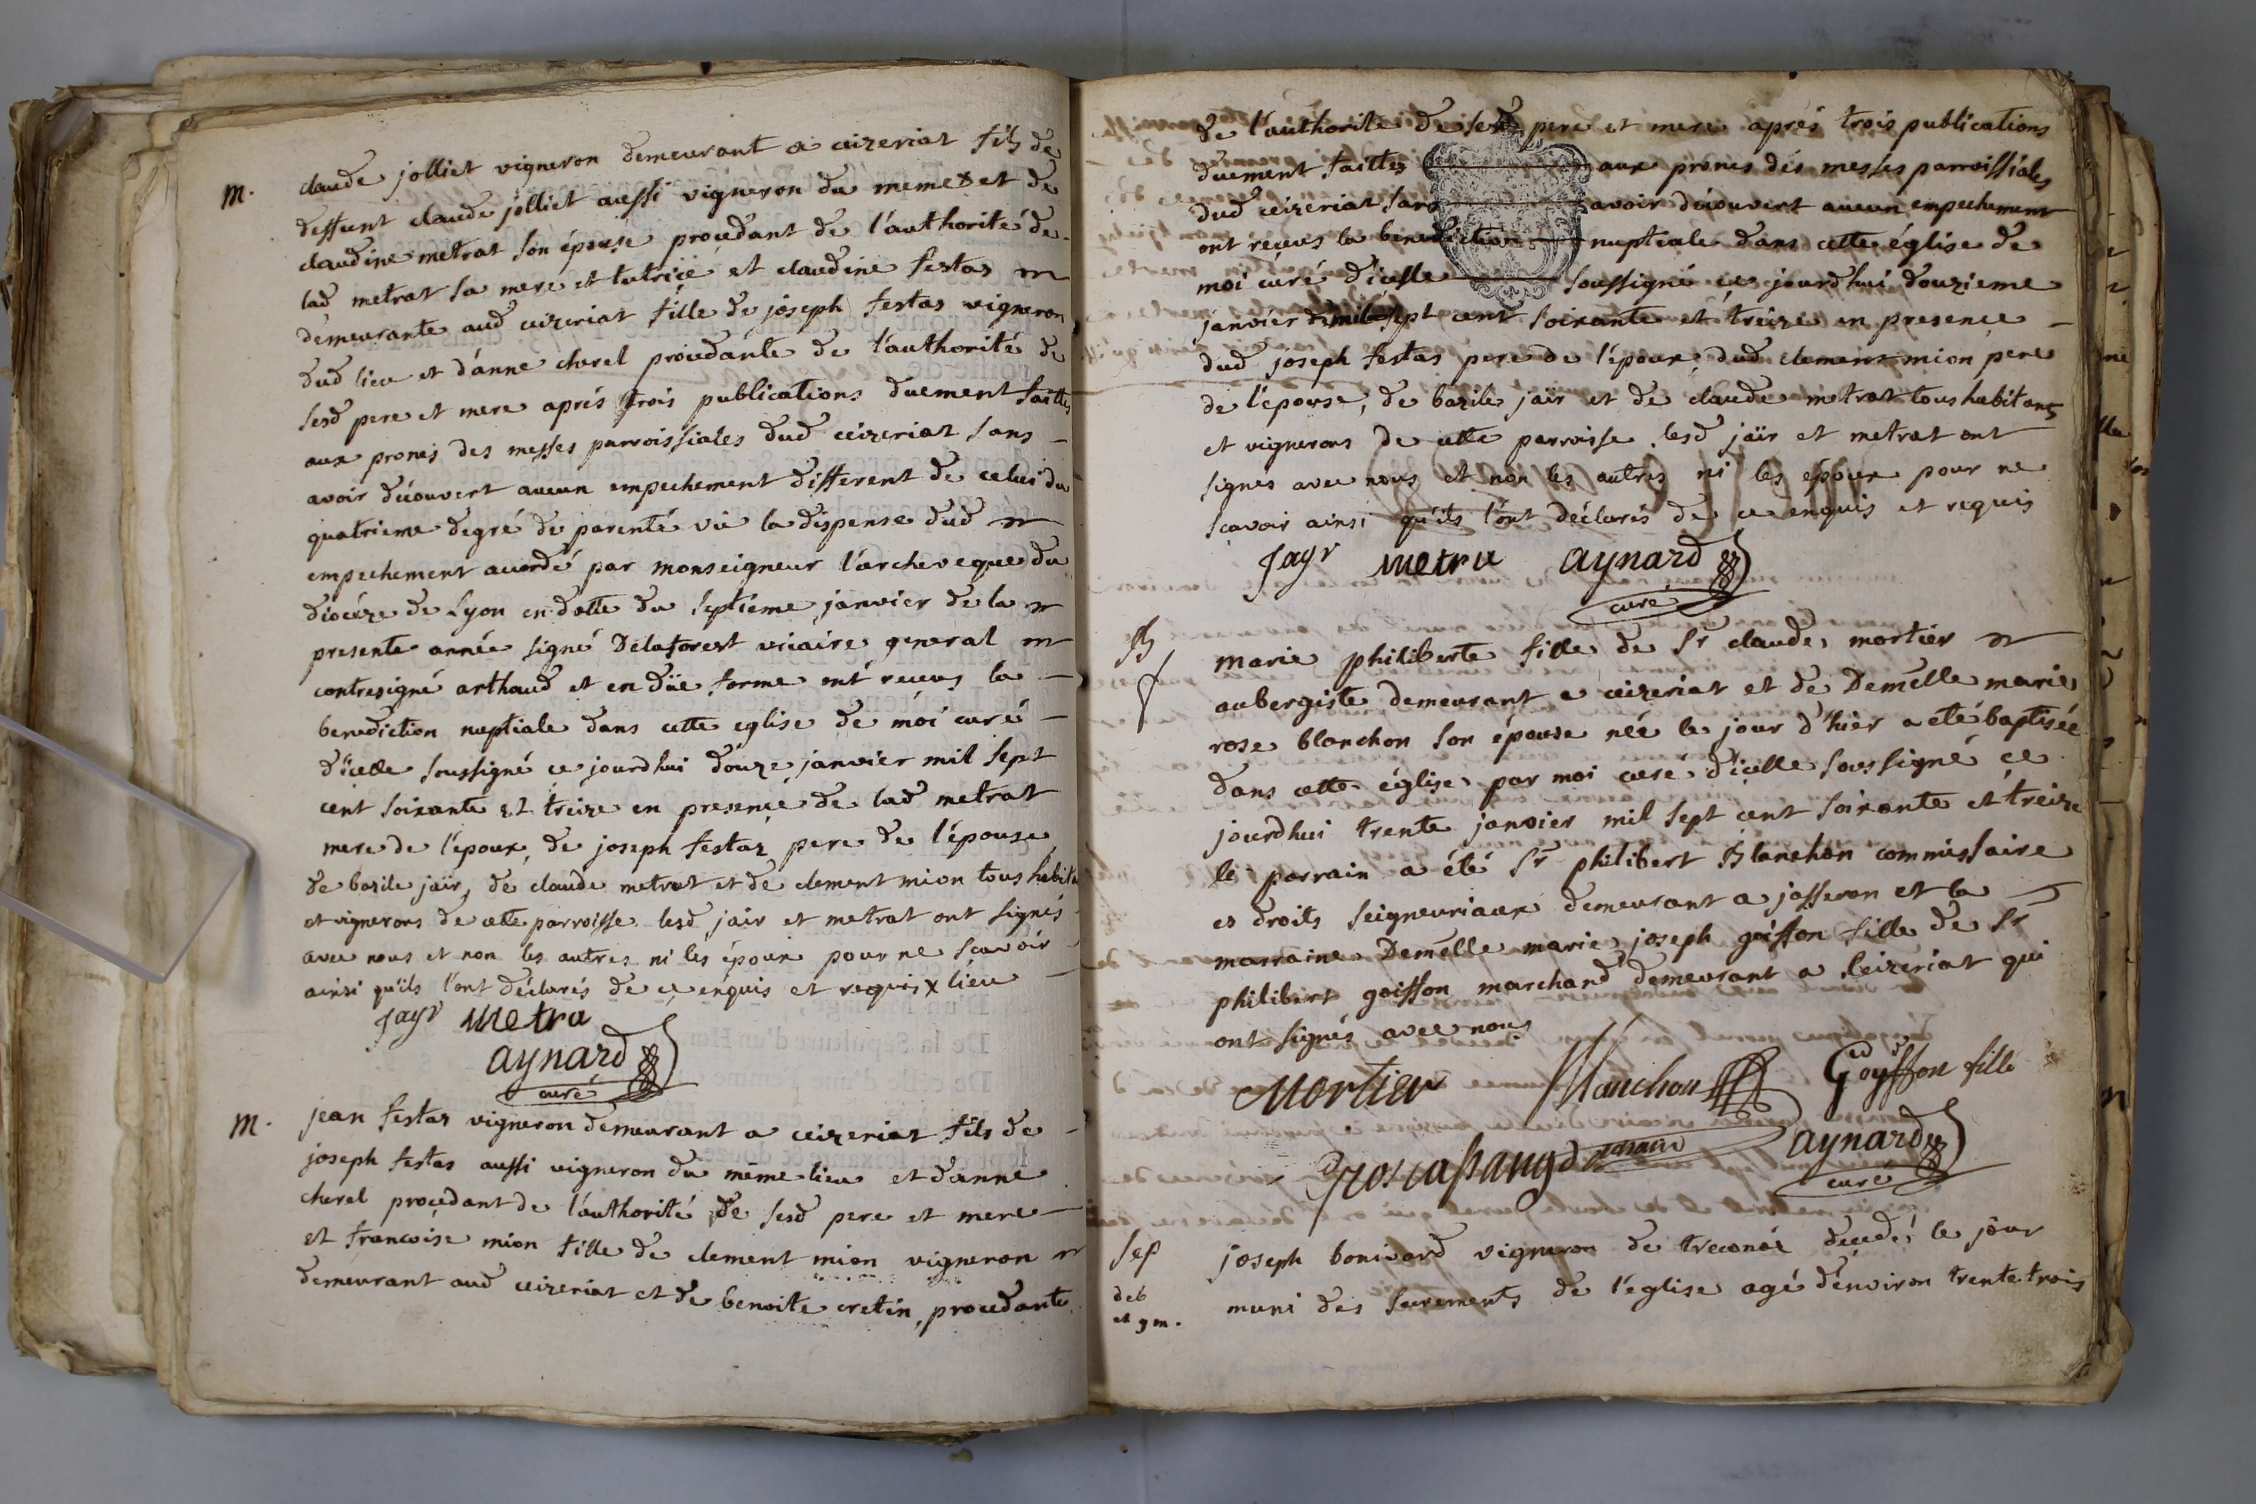 m. claude jolliet vigneron demeurant a ceizeriat fils de
deffunt claude jolliet aussi vigneron du meme x et de
claudine metrat son épouse procedant de l'authorité de
lad metrat sa mere et tutrice et claudine festas
demeurante aud ceizeriat fille de joseph festas vigneron
dud lieu et d'anne cherel procedante de l'authorité de
sesd pere et mere aprés trois publications duement faittes
aux prones des messes parroissiales dud ceizeriat sans
avoir découvert aucun empechement different de celui du
quatrieme degré de parenté vû la dispense dud
empechement accordé par monseigneur l'archeveque du
diocéze de Lyon en datte du septieme janvier de la
presente année signé Delaforest vicaire general
contresigné arthaud et en düe forme ont recus la
benediction nuptiale dans cette eglise de moi curé
d'icelle soussigné ce jourdhui douze janvier mil sept
cent soixante et treize en presence de lad metrat
mere de l'époux, de joseph festaz pere de l'épouse
de bazile jaïr, de claude metrat et de clement mion tous habita
et vignerons de cette parroisse lesd jaïr et metrat ont signés
avec nous et non les autres ni les époux pour ne scavoir
ainsi qu'ils l'ont déclarés de ce enquis et requis x lieu
Jayr metra
aynard
curé
m. jean festas vigneron demeurant a ceizeriat fils de
joseph festas aussi vigneron du même lieu et d'anne
cherel procedant de l'authorité de sesd pere et mere
et francoise mion fille de clement mion vigneron
demeurant aud ceizeriat et de benoite cretin, procedante
de l'authorite de sesd pere et mere aprés trois publications
duement faittes aux prones des messes parroissiales
dud ceizeriat sans avoir découvert aucun empechement
ont recus la benediction nuptiale dans cette église de
moi curé d'icelle soussigné ce jourd'hui douzieme
janvier mil sept cent soixante et treize en presence
dud joseph festas pere de l'époux, dud clement mion pere
de l'épouse, de bazile jaïr et de claude metrat tous habitans
et vignerons de cette parroisse lesd jaïr et metrat ont
signes avec nous et non les autres ni les époux pour ne
scavoir ainsi qu'ils l'ont déclarés de ce enquis et requis
Jayr metra aynard
curé
B marie philiberte fille de Sr claude mortier
aubergiste demeurant a ceizeriat et de Demelle marie
rose blanchon son épouse née le jour d'hier a été baptisée
dans cette église par moi curé d'icelle soussigné ce
jourdhui trente janvier mil sept cent soixante et treize
le parrain a été Sr philibert Blanchon commissaire
es droits seigneuriaux demeurant a jasseron et la
marraine Demelle marie joseph goiffon fille de Sr
philibert goiffon marchand demeurant a Ceizeriat qui
ont signés avec nous
Mortier Blanchon Goyffon fille
aynard
curé
Sep joseph bonivard vigneron de treconaz décedé le jour
deb
et gm. muni des sacrements de l'église agé d'environ trente trois